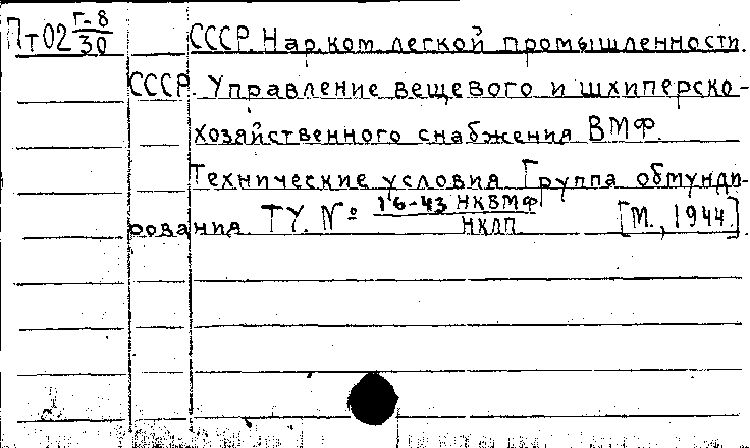 Пт02 Г-8/30 СССР. Нар. ком. легкой промышленности.
СССР. Управление вещевого и шхиперско-
хозяйственного снабжения ВМФ.
Технические условия. Группа обмунди-
рования. ТУ. № 16-43 НКВМФ/НКЛП [М., 1944.]